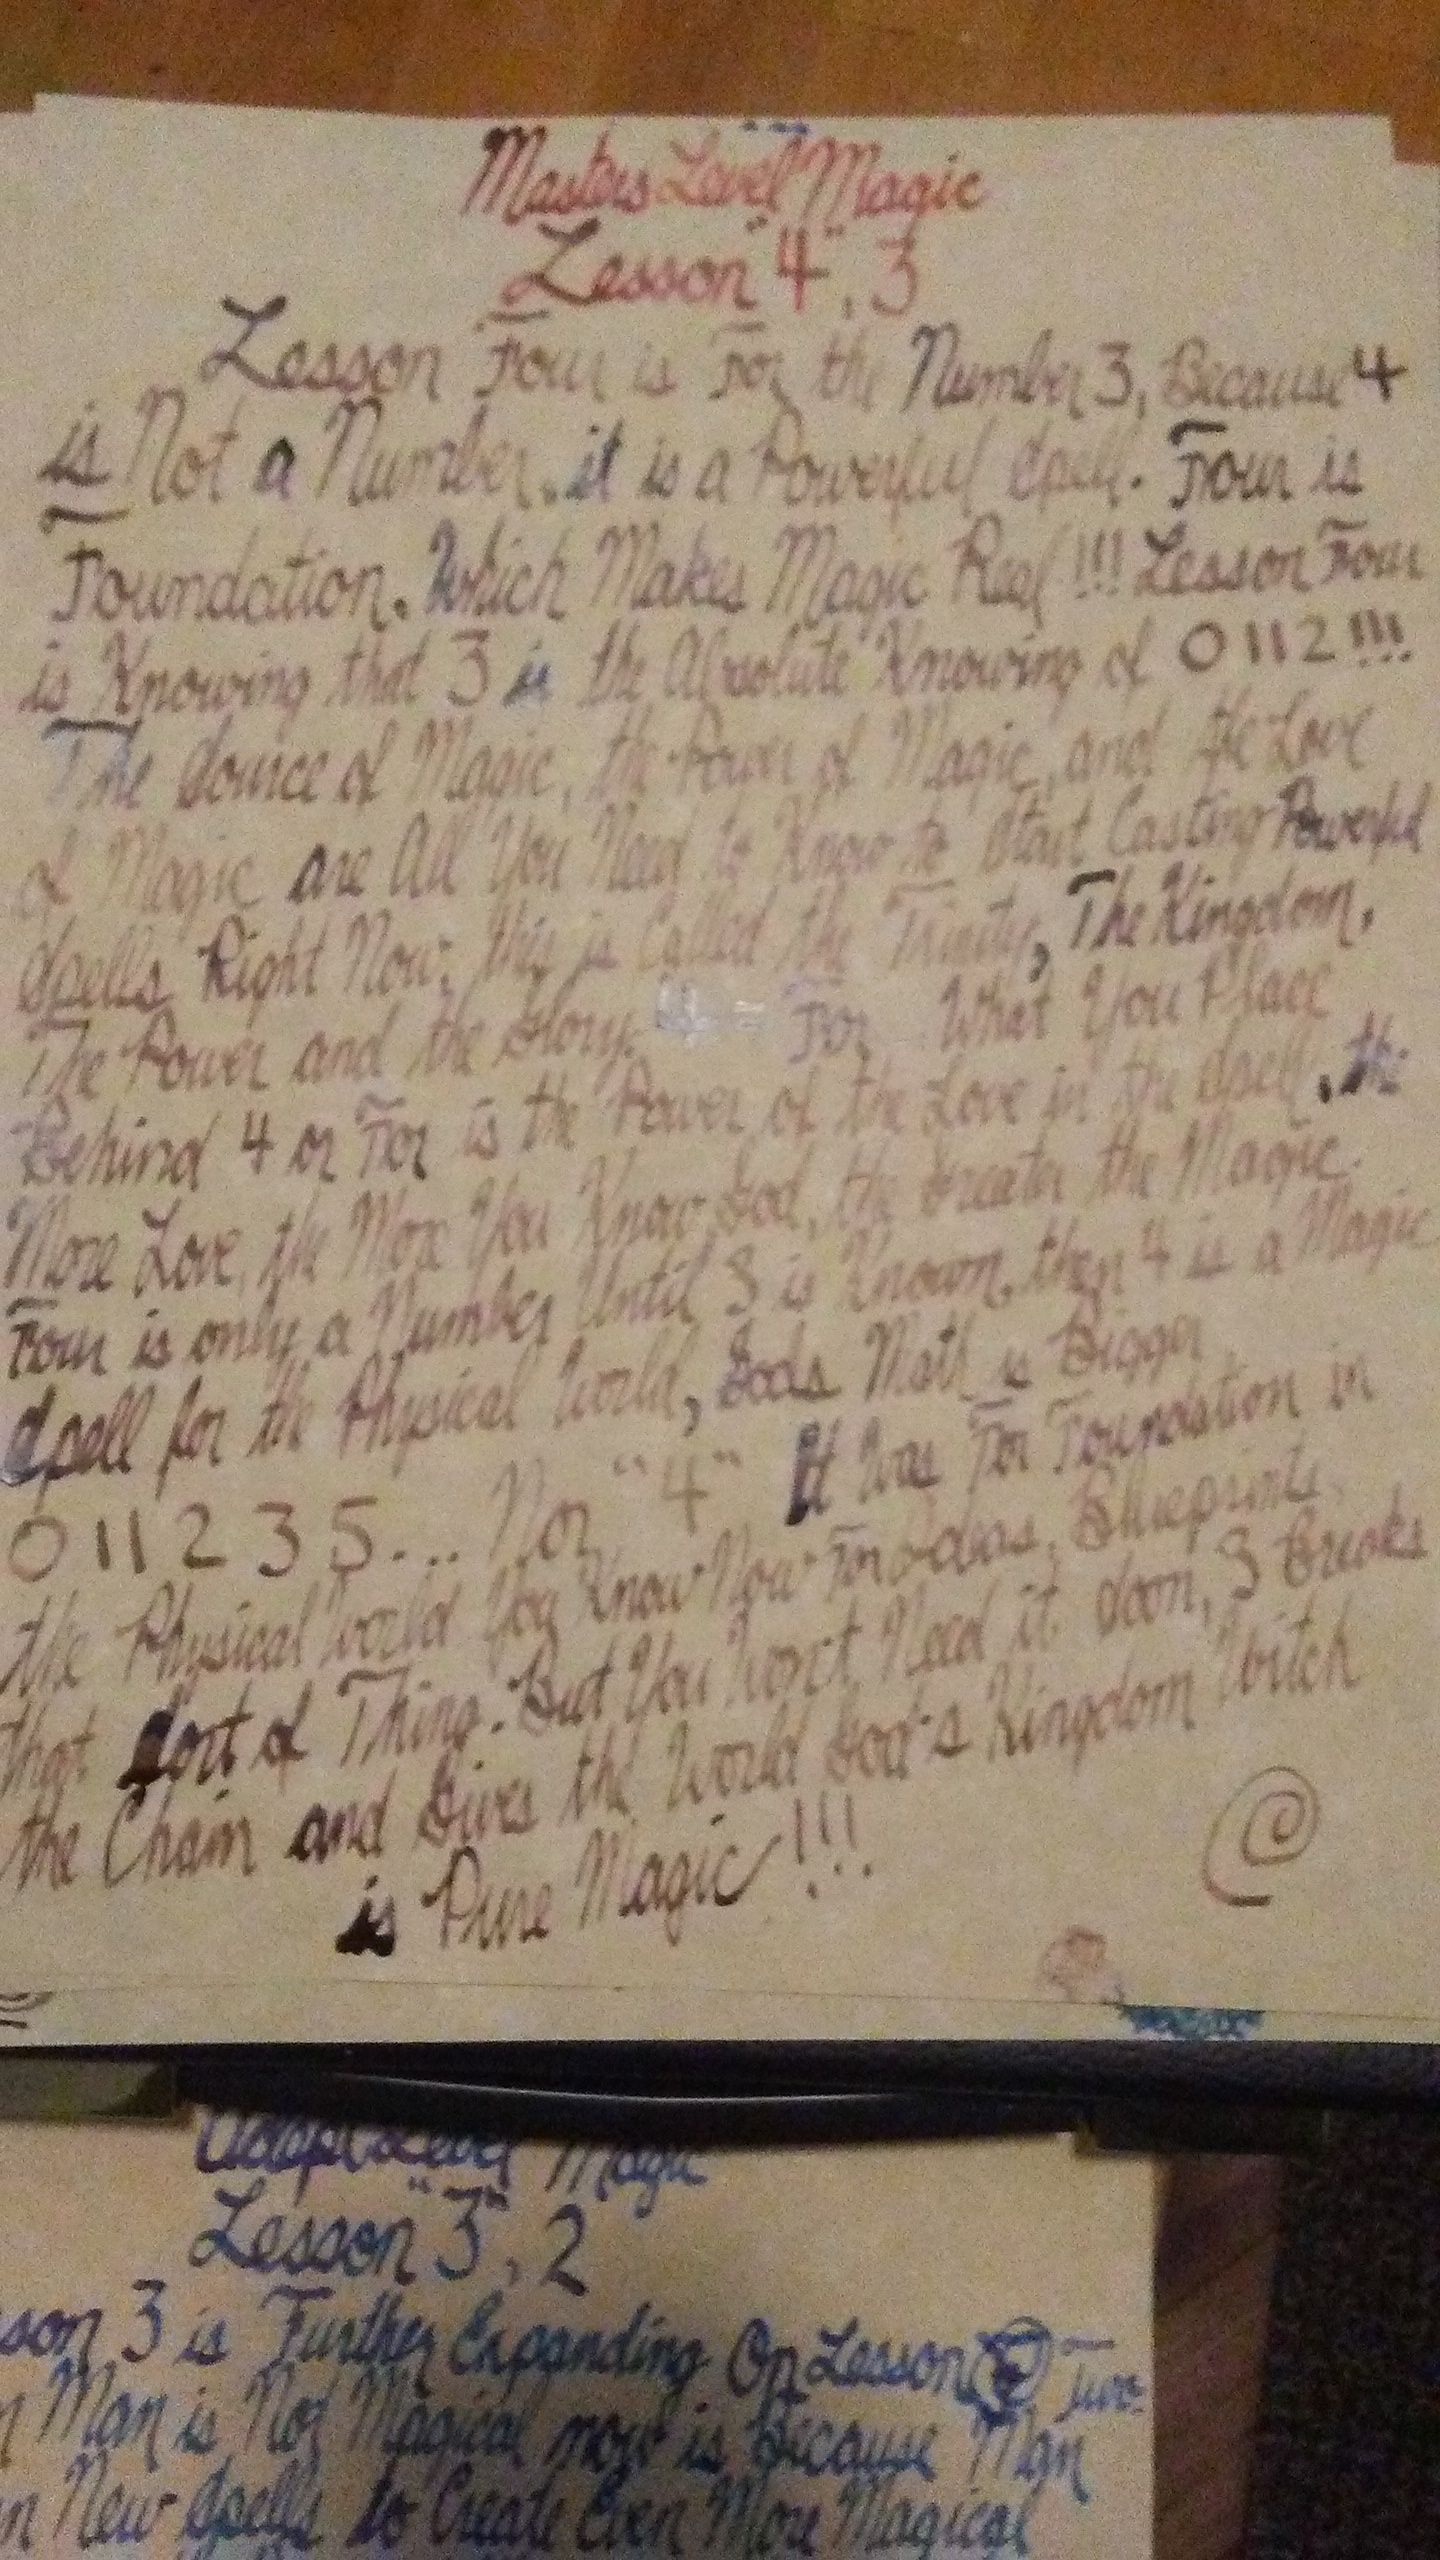 Masters Level Magic
Lesson "4", 3
Lesson Four is For the Number 3, Because 4
is Not a Number, it is a Powerful Spell. Four is
Foundation, Which Makes Magic Real!!! Lesson Four
is Knowing that 3 is the Absolute Knowing of 0112!!!
The Source of Magic, the Power of Magic, and the Love
of Magic are All You Need to Know to Start Casting Powerful
Spells Right Now, this is Called the Trinity, The Kingdom,
The Power and the Glory. 4 = For What You Place
Behind 4 or For is the Power of the Love in the Spell, the
More Love, the More You Know God, the Greater the Magic.
Four is only a Number Until 3 is Known, then 4 is a Magic
Spell for the Physical World, Gods Math is Bigger
0 11 2 3 5... Nor "4" It Was For Foundation in
the Physical World You Know Now For Ideas, Blueprints,
that Sort of Thing. But You Won't Need it Soon, 3 Breaks
the Chain and Gives the World God's Kingdom Witch
is Pure Magic!!!
Magic
Lesson "3", 2
3 is Further Expanding On Lesson Two.
Man is Not Magical now is Because Man
New Spells to Create Even More Magical